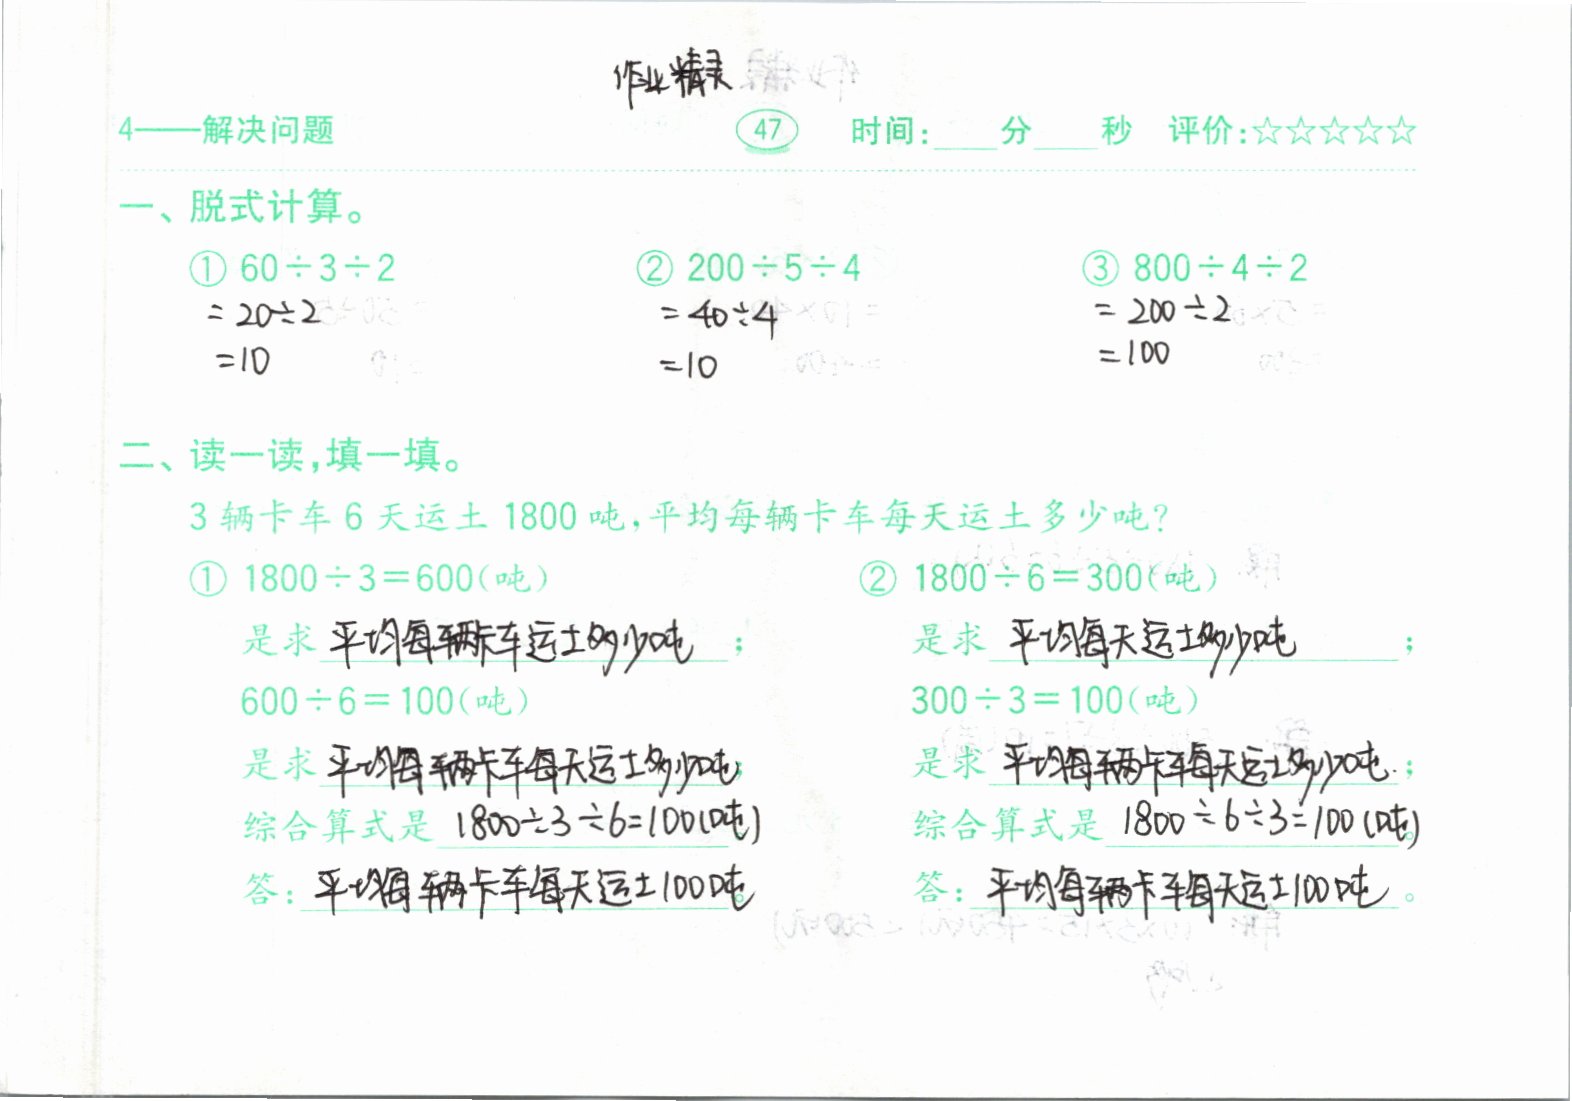 作业精灵
4——解决问题 47 时间:____分____秒 评价:☆☆☆☆☆
一、脱式计算。
① 60÷3÷2 ② 200÷5÷4 ③ 800÷4÷2
=20÷2 =40÷4 =200÷2
=10 =10 =100
二、读一读,填一填。
3辆卡车6天运土1800吨,平均每辆卡车每天运土多少吨?
① 1800÷3=600(吨) ② 1800÷6=300(吨)
是求平均每辆卡车运土多少吨; 是求平均每天运土多少吨;
600÷6=100(吨) 300÷3=100(吨)
是求平均每辆卡车每天运土多少吨; 是求平均每辆卡车每天运土多少吨;
综合算式是1800÷3÷6=100(吨) 综合算式是1800÷6÷3=100(吨)。
答:平均每辆卡车每天运土100吨。 答:平均每辆卡车每天运土100吨。